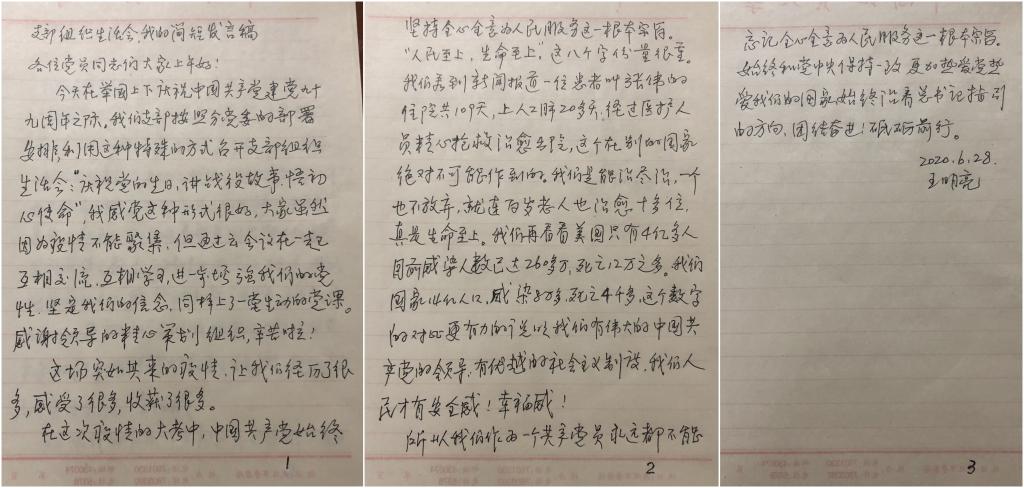 支部组织生活会,我的简短发言稿
各位党员同志们大家上午好!
今天在举国上下庆祝中国共产党建党九十
九周年之际,我们支部按照分党委的部署
安排,利用这种特殊的方式召开支部组织
生活会:"庆祝党的生日,讲战役故事,悟初
心使命",我感觉这种形式很好,大家虽然
因为疫情不能聚集,但通过云会议在一起
互相交流,互相学习,进一步增强我们的党
性,坚定我们的信念,同样上了一堂生动的党课。
感谢领导的精心策划组织,辛苦啦!
这场突如其来的疫情,让我们经历了很
多,感受了很多,收获了很多。
在这次疫情的大考中,中国共产党始终
1
坚持全心全意为人民服务这一根本宗旨。
"人民至上,生命至上",这八个字份量很重。
我们看到新闻报道一位患者叫张伟的
住院共109天,上人工肺20多天,经过医护人
员精心抢救治愈出院,这个在别的国家
绝对不可能作到的。我们是能治尽治,一个
也不放弃,就连百岁老人也治愈十多位,
真是生命至上。我们再看看美国只有4亿多人
目前感染人数已达260多万,死亡12万之多。我们
国家14亿人口,感染8万多,死亡4千多,这个数字
的对比更有力的说明我们有伟大的中国共
产党的领导,有优越的社会主义制度,我们人
民才有安全感!幸福感!
所以我们作为一个共产党员永远都不能
2
忘记全心全意为人民服务这一根本宗旨。
始终和党中央保持一致,更加热爱党热
爱我们的国家,始终沿着总书记指引
的方向,团结奋进!砥砺前行。
2020.6.28.
王明亮
3